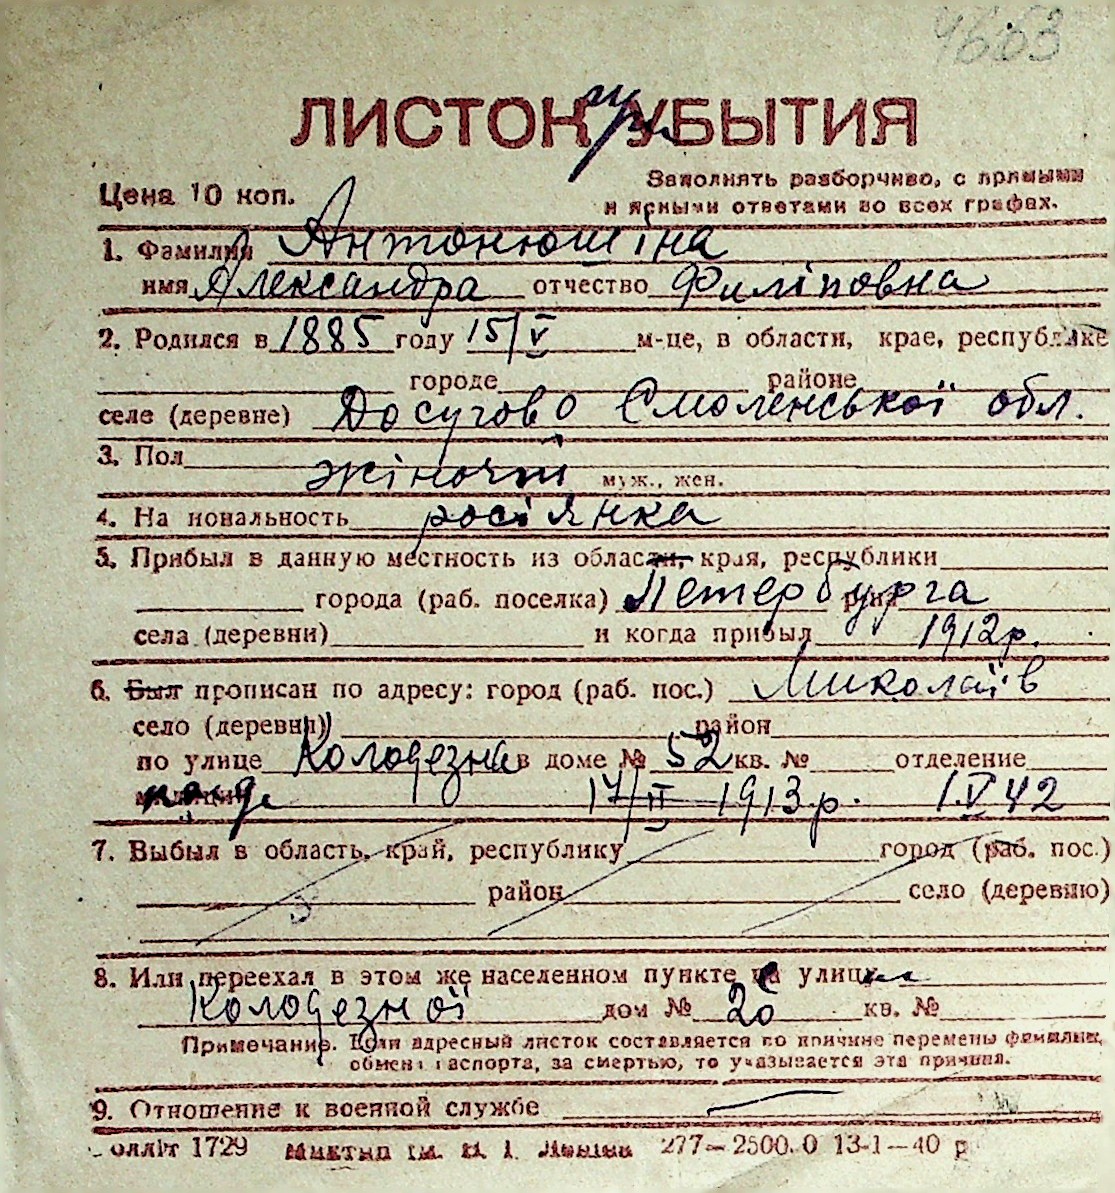 4663
ЛИСТОК УБЫТИЯ
Цена 10 коп.
Заполнять разборчиво, с прямыми
и ясными ответами во всех графах.
1. Фамилия Антонюшіна
имя Александра отчество Филіповна
2. Родился в 1885 году 15/V м-це, в области, крае, республике
городе районе
селе (деревне) Досугово Смоленської обл.
3. Пол жіночий муж., жен.
4. Национальность росіянка
5. Прибыл в данную местность из области, края, республики
города (раб. поселка) Петербурга
села (деревни) и когда прибыл 1912 р.
6. Был прописан по адресу: город (раб. пос.) Миколаїв
село (деревня) район
по улице Колодезна в доме № 52 кв. № отделение
милиции 17/II 1913 р. 1.V 42
7. Выбыл в область, край, республику город (раб. пос.)
район село (деревню)
8. Или переехал в этом же населенном пункте улицы
Колодезної дом № 26 кв. №
Примечание. Если адресный листок составляется по причине перемены фамилии,
обмена паспорта, за смертью, то указывается эта причина.
9. Отношение к военной службе
оллiт 1729 ім. 277—2500.0 13-1—40 р